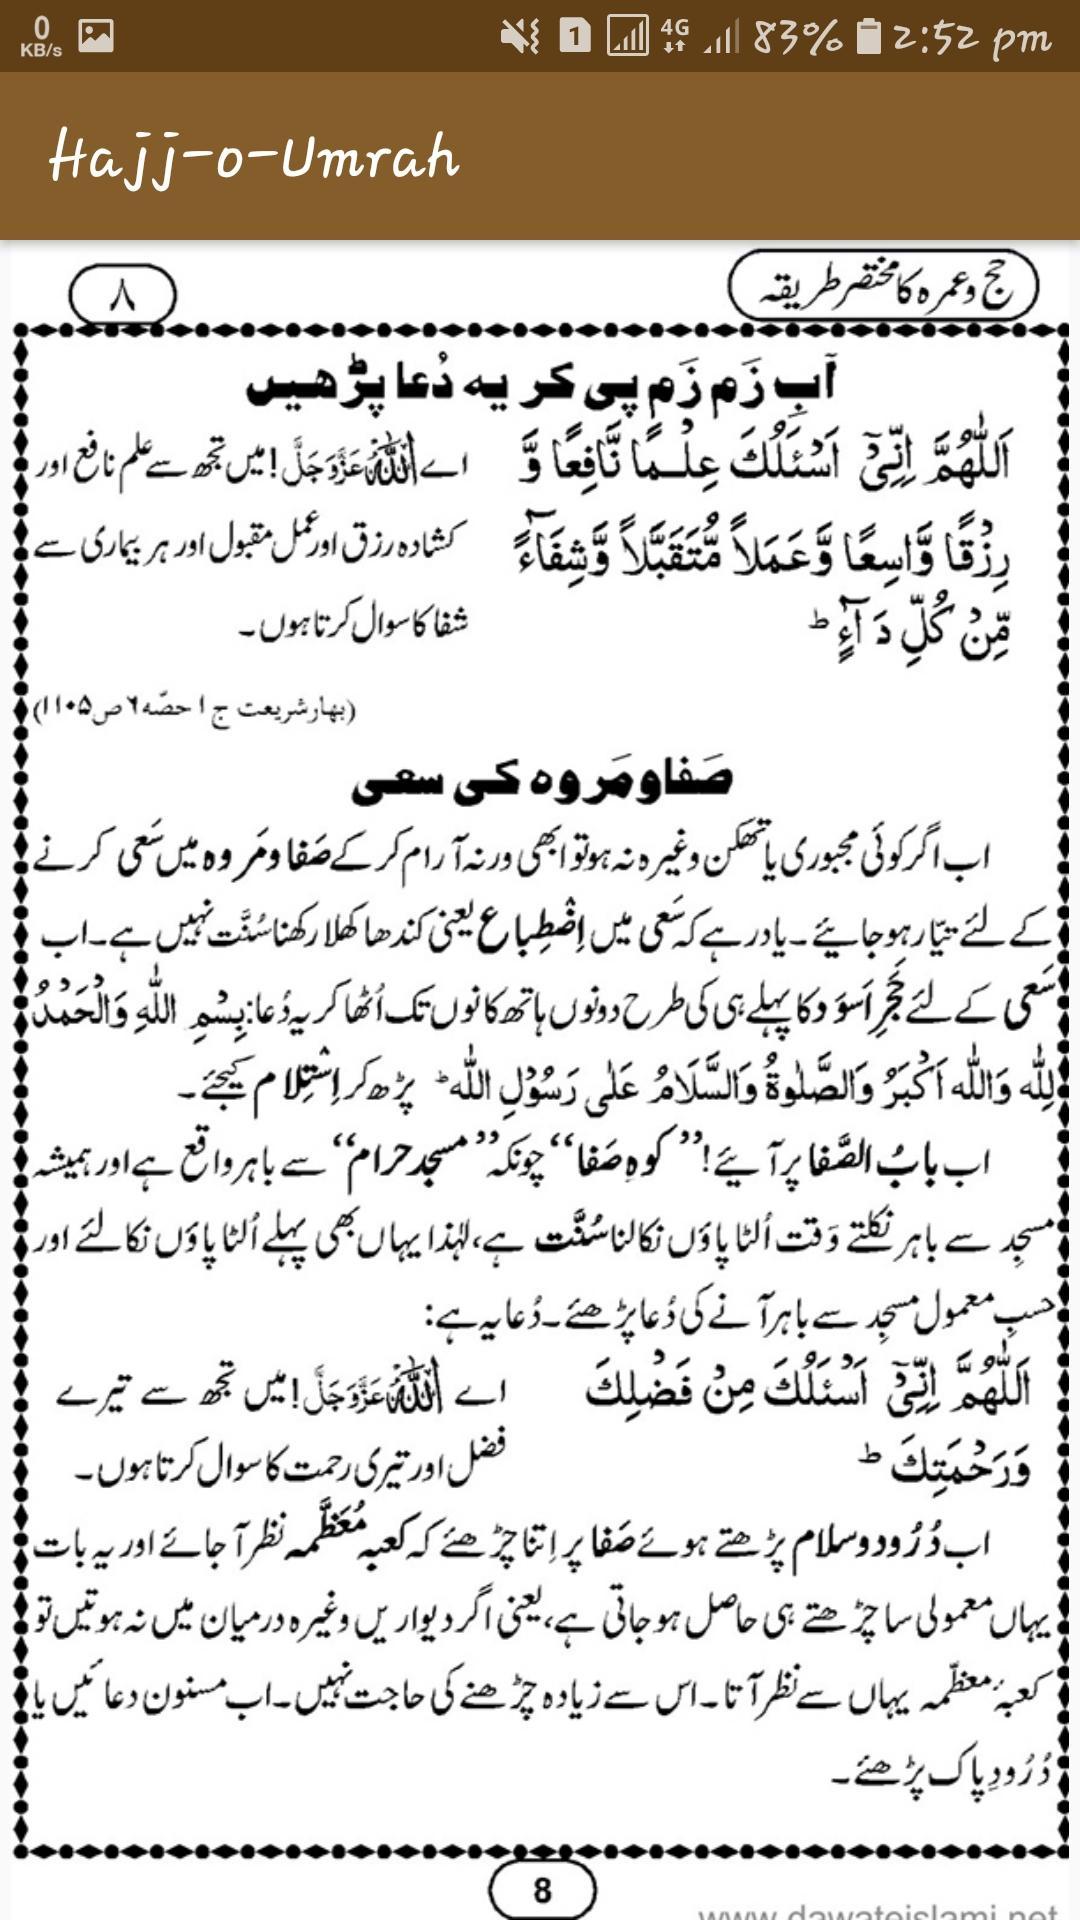 0
KB/s
1
4G
83%
2:52 pm
Hajj-o-Umrah
حج وعمرہ کا مختصر طریقہ
۸
آبِ زَم زَم پی کر یہ دُعا پڑھیں
اَللّٰھُمَّ اِنِّیْٓ اَسْئَلُکَ عِلْـمًا نَّافِعًا وَّ
رِزْقًا وَّاسِعًا وَّعَمَلاً مُّتَقَبَّلاً وَّشِفَآءً
مِّنْ کُلِّ دَ آءٍ ؕ
اے اللّٰہ عَزَّوَجَلَّ! میں تجھ سے علم نافع اور
کشادہ رزق اور عمل مقبول اور ہر بیماری سے
شفا کا سوال کرتا ہوں۔
(بہار شریعت ج ۱ حصّہ ۶ ص ۱۱۰۵)
صَفا و مَروہ کی سعی
اب اگر کوئی مجبوری یا تھکن وغیرہ نہ ہو تو ابھی ورنہ آرام کرکے صَفا و مَروہ میں سَعی کرنے
کے لئے تیّار ہوجائیے۔ یاد رہے کہ سَعی میں اِضْطِباع یعنی کندھا کھلا رکھنا سُنَّت نہیں ہے۔ اب
سَعی کے لئے حَجَرِ اَسوَد کا پہلے ہی کی طرح دونوں ہاتھ کانوں تک اُٹھا کر یہ دُعا: بِسْمِ اللّٰہِ وَالْحَمْدُ
لِلّٰہ وَاللّٰہ اَکْبَرُ وَالصَّلٰوۃُ وَالسَّلَامُ عَلٰی رَسُوْلِ اللّٰہ ؕ پڑھ کر اِسْتِلام کیجئے۔
اب بابُ الصَّفا پر آیئے! ’’کوہِ صَفا‘‘ چونکہ ’’مسجدِ حرام‘‘ سے باہر واقع ہے اور ہمیشہ
مسجِد سے باہر نکلتے وَقت اُلٹا پاؤں نکالنا سُنَّت ہے، لہٰذا یہاں بھی پہلے اُلٹا پاؤں نکالئے اور
حسبِ معمول مسجِد سے باہر آنے کی دُعا پڑھئے۔ دُعا یہ ہے:
اَللّٰھُمَّ اِنِّیْٓ اَسْئَلُکَ مِنْ فَضْلِکَ
وَرَحْمَتِکَ ؕ
اے اللّٰہ عَزَّوَجَلَّ! میں تجھ سے تیرے
فضل اور تیری رحمت کا سوال کرتا ہوں۔
اب دُرُود و سلام پڑھتے ہوئے صَفا پر اِتنا چڑھئے کہ کعبہ مُعَظَّمہ نظر آجائے اور یہ بات
یہاں معمولی سا چڑھتے ہی حاصل ہوجاتی ہے، یعنی اگر دیواریں وغیرہ درمیان میں نہ ہوتیں تو
کعبۂ معظّمہ یہاں سے نظر آتا۔ اس سے زیادہ چڑھنے کی حاجت نہیں۔ اب مسنون دعائیں یا
دُرُودِ پاک پڑھئے۔
8
www.dawateislami.net